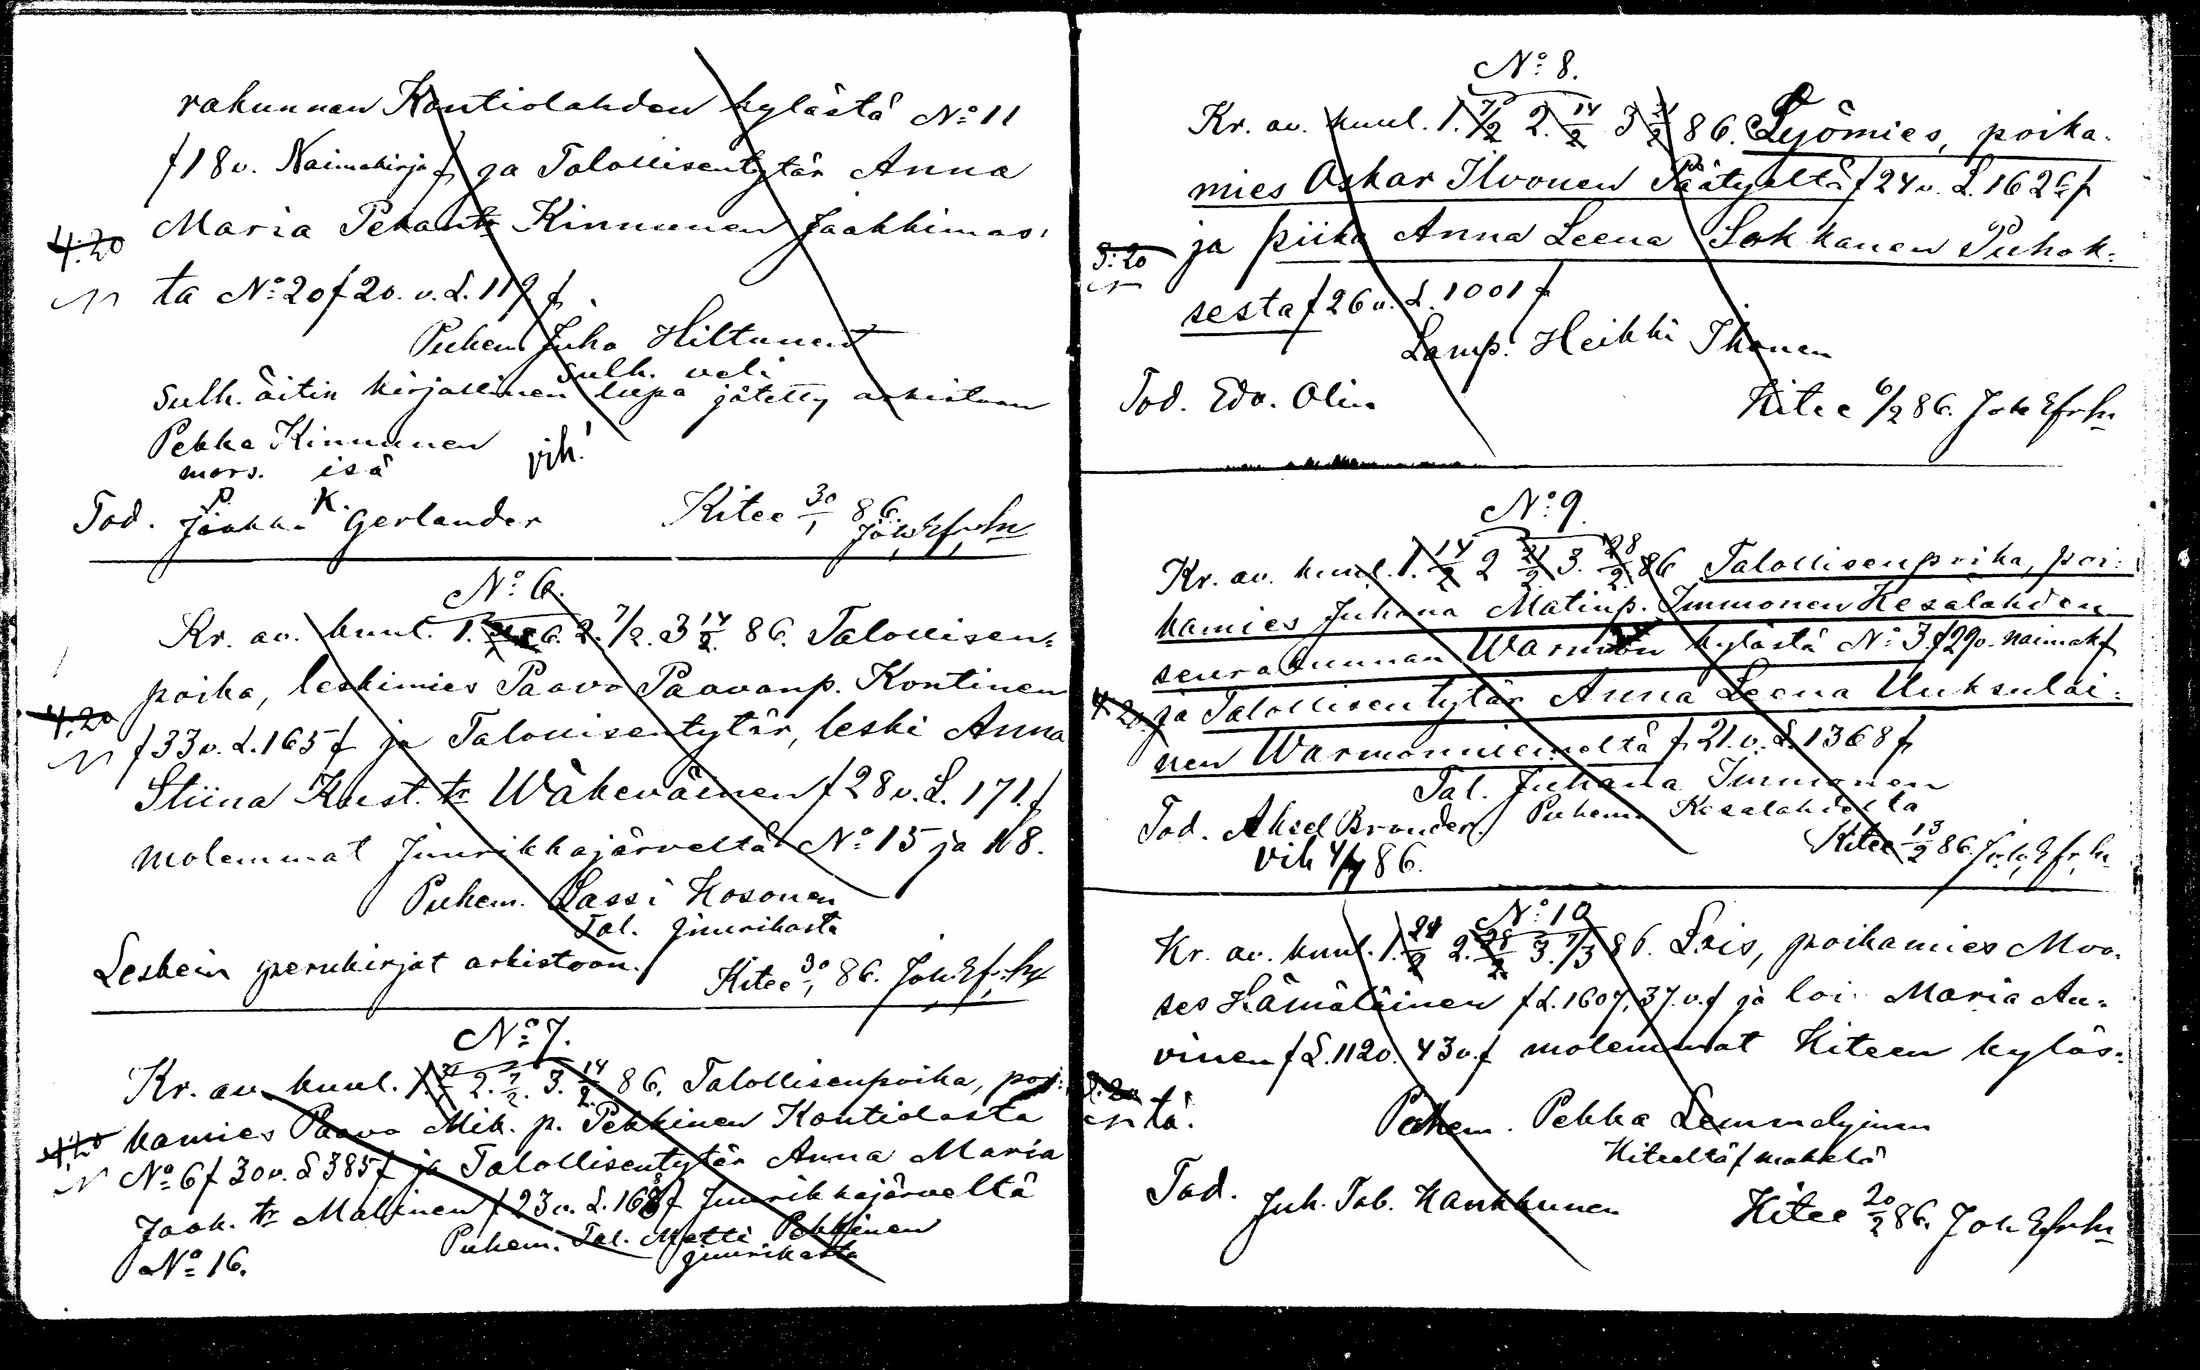 rakunnan Kontiolahden kylästä No 11
f 18 v. Naimakirja f ja Talollisentytär Anna
Maria Pekantr Kinnunen Jaakkimas-
4:20
ta No 20 f 20. v. L. 119 f
Puhem Juho Hiltunen
Sulh. veli
Sulh. äitin kirjallinen lupa jätetty arkistoon
Pekka Kinnunen
mors. isä
vih!
Tod. Jaakko Gerlander
P. K.
Kitee 30/1 86.
No 6.
Kr. av. kuul. 1. 2. 7/2. 3 14/2 86. Talollisen-
poika, leskimies Paavo Paavonp. Kontinen
4.20
f 33 v. L. 165 f ja Talollisentytär, leski Anna
Stiina Kust. tr Wäkeväinen f 28 v. L. 171. f
molemmat Juurikkajärveltä No 15 ja 18.
Puhem. Lassi Kosonen
Tal. Juurikasta
Leskein perukirjat arkistoon.
Kitee 30/1 86.
No 7.
Kr. av. kuul. 1. 31/1 2. 7/2. 3. 14/2. 86. Talollisenpoika, poi-
kamies Paavo Mik. p. Pekkinen Kontiolasta
4.20
No 6 f 30 v. L 385 f ja Talollisentytär Anna Maria
Jaak. tr Malinen f 23 v. L. 168 f Juurikkajärveltä
No 16.
Puhem. Tal. Matti Pekkinen
Juurikasta
No 8.
Kr. av. kuul. 1. 7/2 2. 14/2 3 21/2 86. Työmies, poika-
mies Oskar Ilvonen Päätyeltä f 24 v. L. 1626 f
ja piika Anna Leena Sokkanen Puhok-
3:20
sesta f 26 v. L. 1001 f
Lamp. Heikki Ikonen
Tod. Edv. Olin
Kitee 6/2 86.
No 9.
Kr. av. kuul. 1. 14/2 2 21/2 3. 28/2 86 Talollisenpoika, poi-
kamies Juhana Matinp. Immonen Kesalahden
seurakunnan Warmon kylästä No 3. f 29 v. naimak f
4.20
ja Talollisentytär Anna Leena Uuksulai-
nen Warmonniemeltä f 21. v. L. 1368 f
Tal. Juhana Immonen
Puhem. Kesalahdelta
Tod. Aksel Brander
vih 4/4 86.
Kitee 13/2 86.
No 10
Kr. av. kuul. 1. 21/2 2. 28/2 3. 7/3 86. Lois, poikamies Moo-
ses Hämäläinen f L. 1607, 37. v. f ja loi. Maria Au-
vinen f L. 1120. 43 v. f molemmat Kiteen kyläs-
3.20
tä.
Puhem. Pekka Lemmelyinen
Kiteeltä f mäkelä
Tod. Juh. Tob. Hankkunen
Kitee 20/2 86.